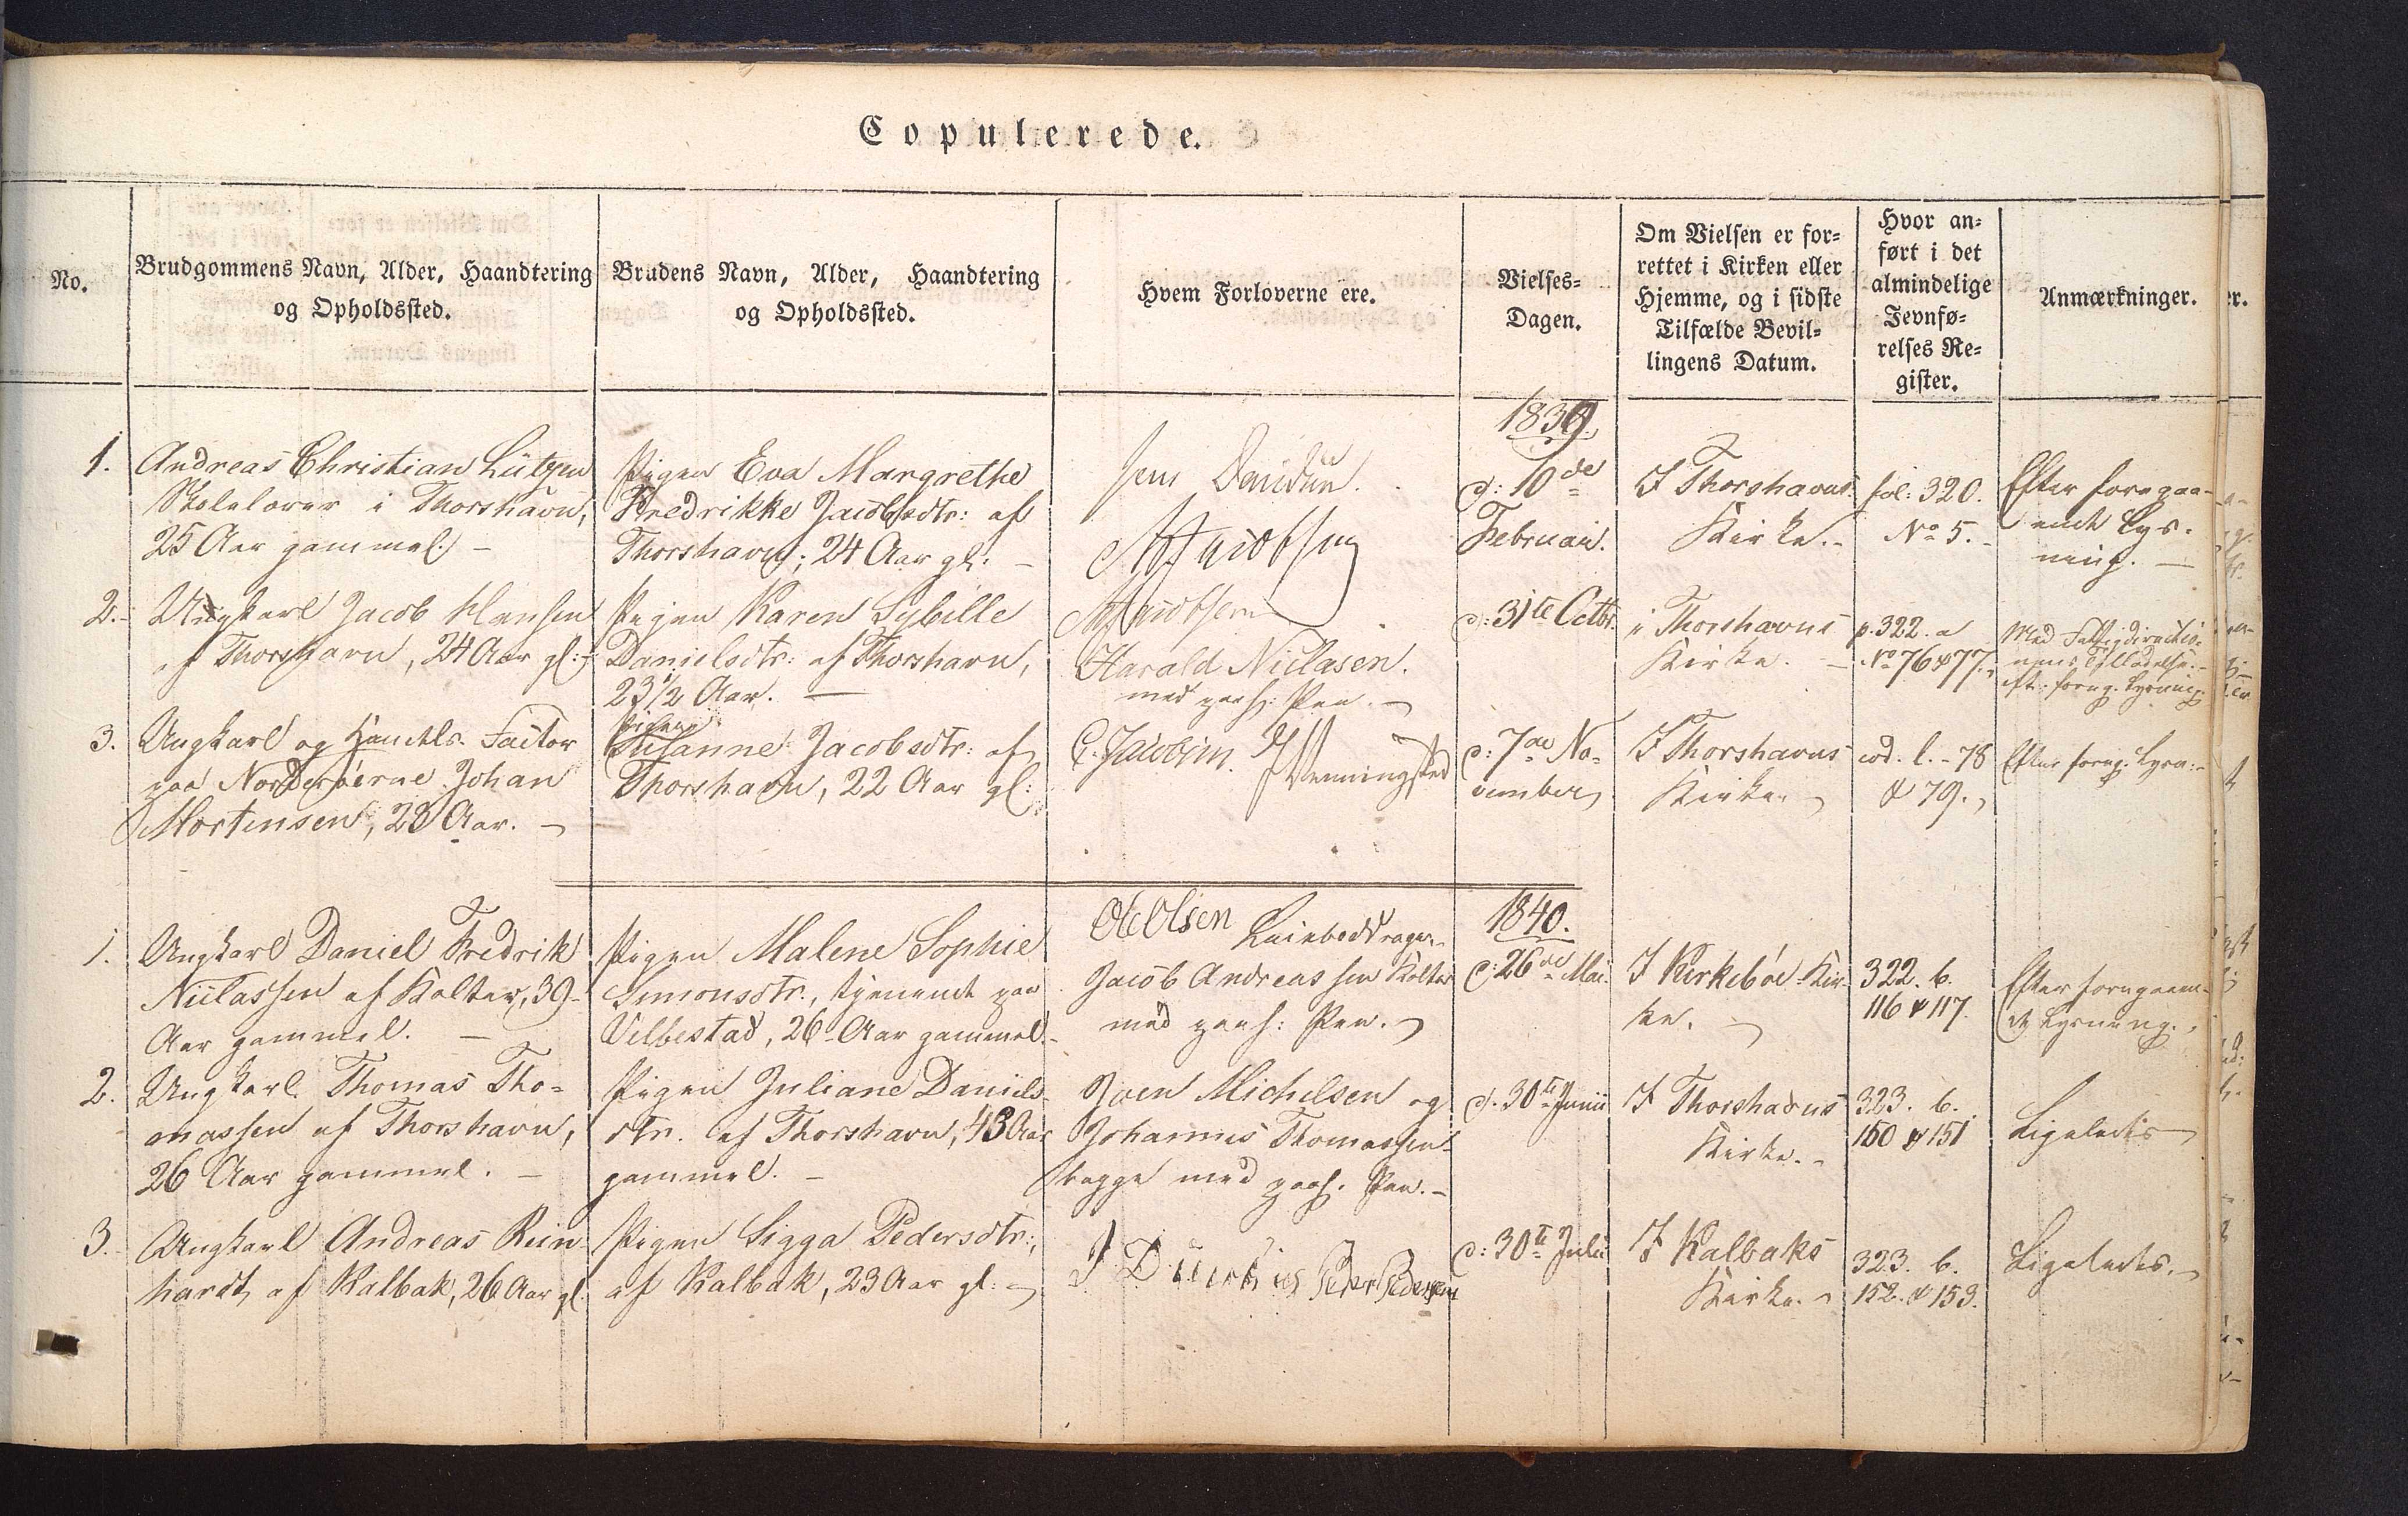 Copulerede.
No.
Brudgommens Navn, Alder, Haandtering
og Opholdssted.
Brudens Navn, Alder, Haandtering
og Opholdssted.
Hvem Forloverne ere.
Vielses-
Dagen.
Om Vielsen er for-
rettet i Kirken eller
Hjemme, og i sidste
Tilfælde Bevil-
lingens Datum.
Hvor an-
ført i det
almindelige
Jevnfø-
relses Re-
gister.
Anmærkninger.
1839.
1.
Andreas Christian Lützen
Skolelærer i Thorshavn,
25 Aar gammel. -
Pigen Eva Margrethe
Fredrikke Jacobsdtr: af
Thorshavn; 24 Aar gl: -
Jens Davidsen.
Jacobsen
d: 10de
Februari.
I Thorshavns
Kirke. -
fol: 320.
No 5. -
Efter foregaa-
ende Lys-
ning. -
2. -
Ungkarl Jacob Hansen
af Thorshavn, 24 Aar gl: -
Pigen Karen Sybille
Danielsdtr: af Thorshavn,
23 1/2 Aar. -
Jacobsen
Harald Niclasen.
med paah: Pen. -
d: 31te Octbr.
i Thorshavns
Kirke. -
p. 322. a
No 76 & 77.
Med Fattigdirectio-
nens Tilladelse. -
eft: foreg. Lysning.
3.
Ungkarl og Handels-Factor
paa Norderöerne Johan
Mortensen, 28 Aar. -
Pigen
Susanne Jacobsdtr: af
Thorshavn, 22 Aar gl:
C. Jacobsen. Wenningsted
d: 7de No-
vember
I Thorshavns
Kirke.
eod. l. - 78
& 79.
Efter foreg. Lysn: -
1840.
1.
Ungkarl Daniel Fredrik
Niclassen af Kolter, 39-
Aar gammel. -
Pigen Malene Sophie
Simonsdtr., tjenende paa
Velbestad, 26 Aar gammel. -
Ole Olsen
Jacob Andreassen Kolter
med paah: Pen.
d: 26de Mai.
I Kirkeböe Kir-
ke.
322. b.
116 & 117.
Efter foregaaen-
de Lysning.
2.
Ungkarl Thomas Tho-
massen af Thorshavn,
26 Aar gammel. -
Pigen Juliane Daniels-
dtr. af Thorshavn, 43 Aar
gammel. -
Joen Michelsen og
Johannes Thomassen
begge med paah. Pen. -
d. 30te Junii
I Thorshavns
Kirke. -
323. b.
150 & 151
Ligeledes
3.
Ungkarl Andreas Rein-
hardt af Kalbak, 26 Aar gl.
Pigen Sigga Pedersdtr:,
af Kalbak, 23 Aar gl: -
Peder Pedersen
d: 30te Julii
I Kalbaks
Kirke.
323. b.
152. & 153.
Ligeledes.